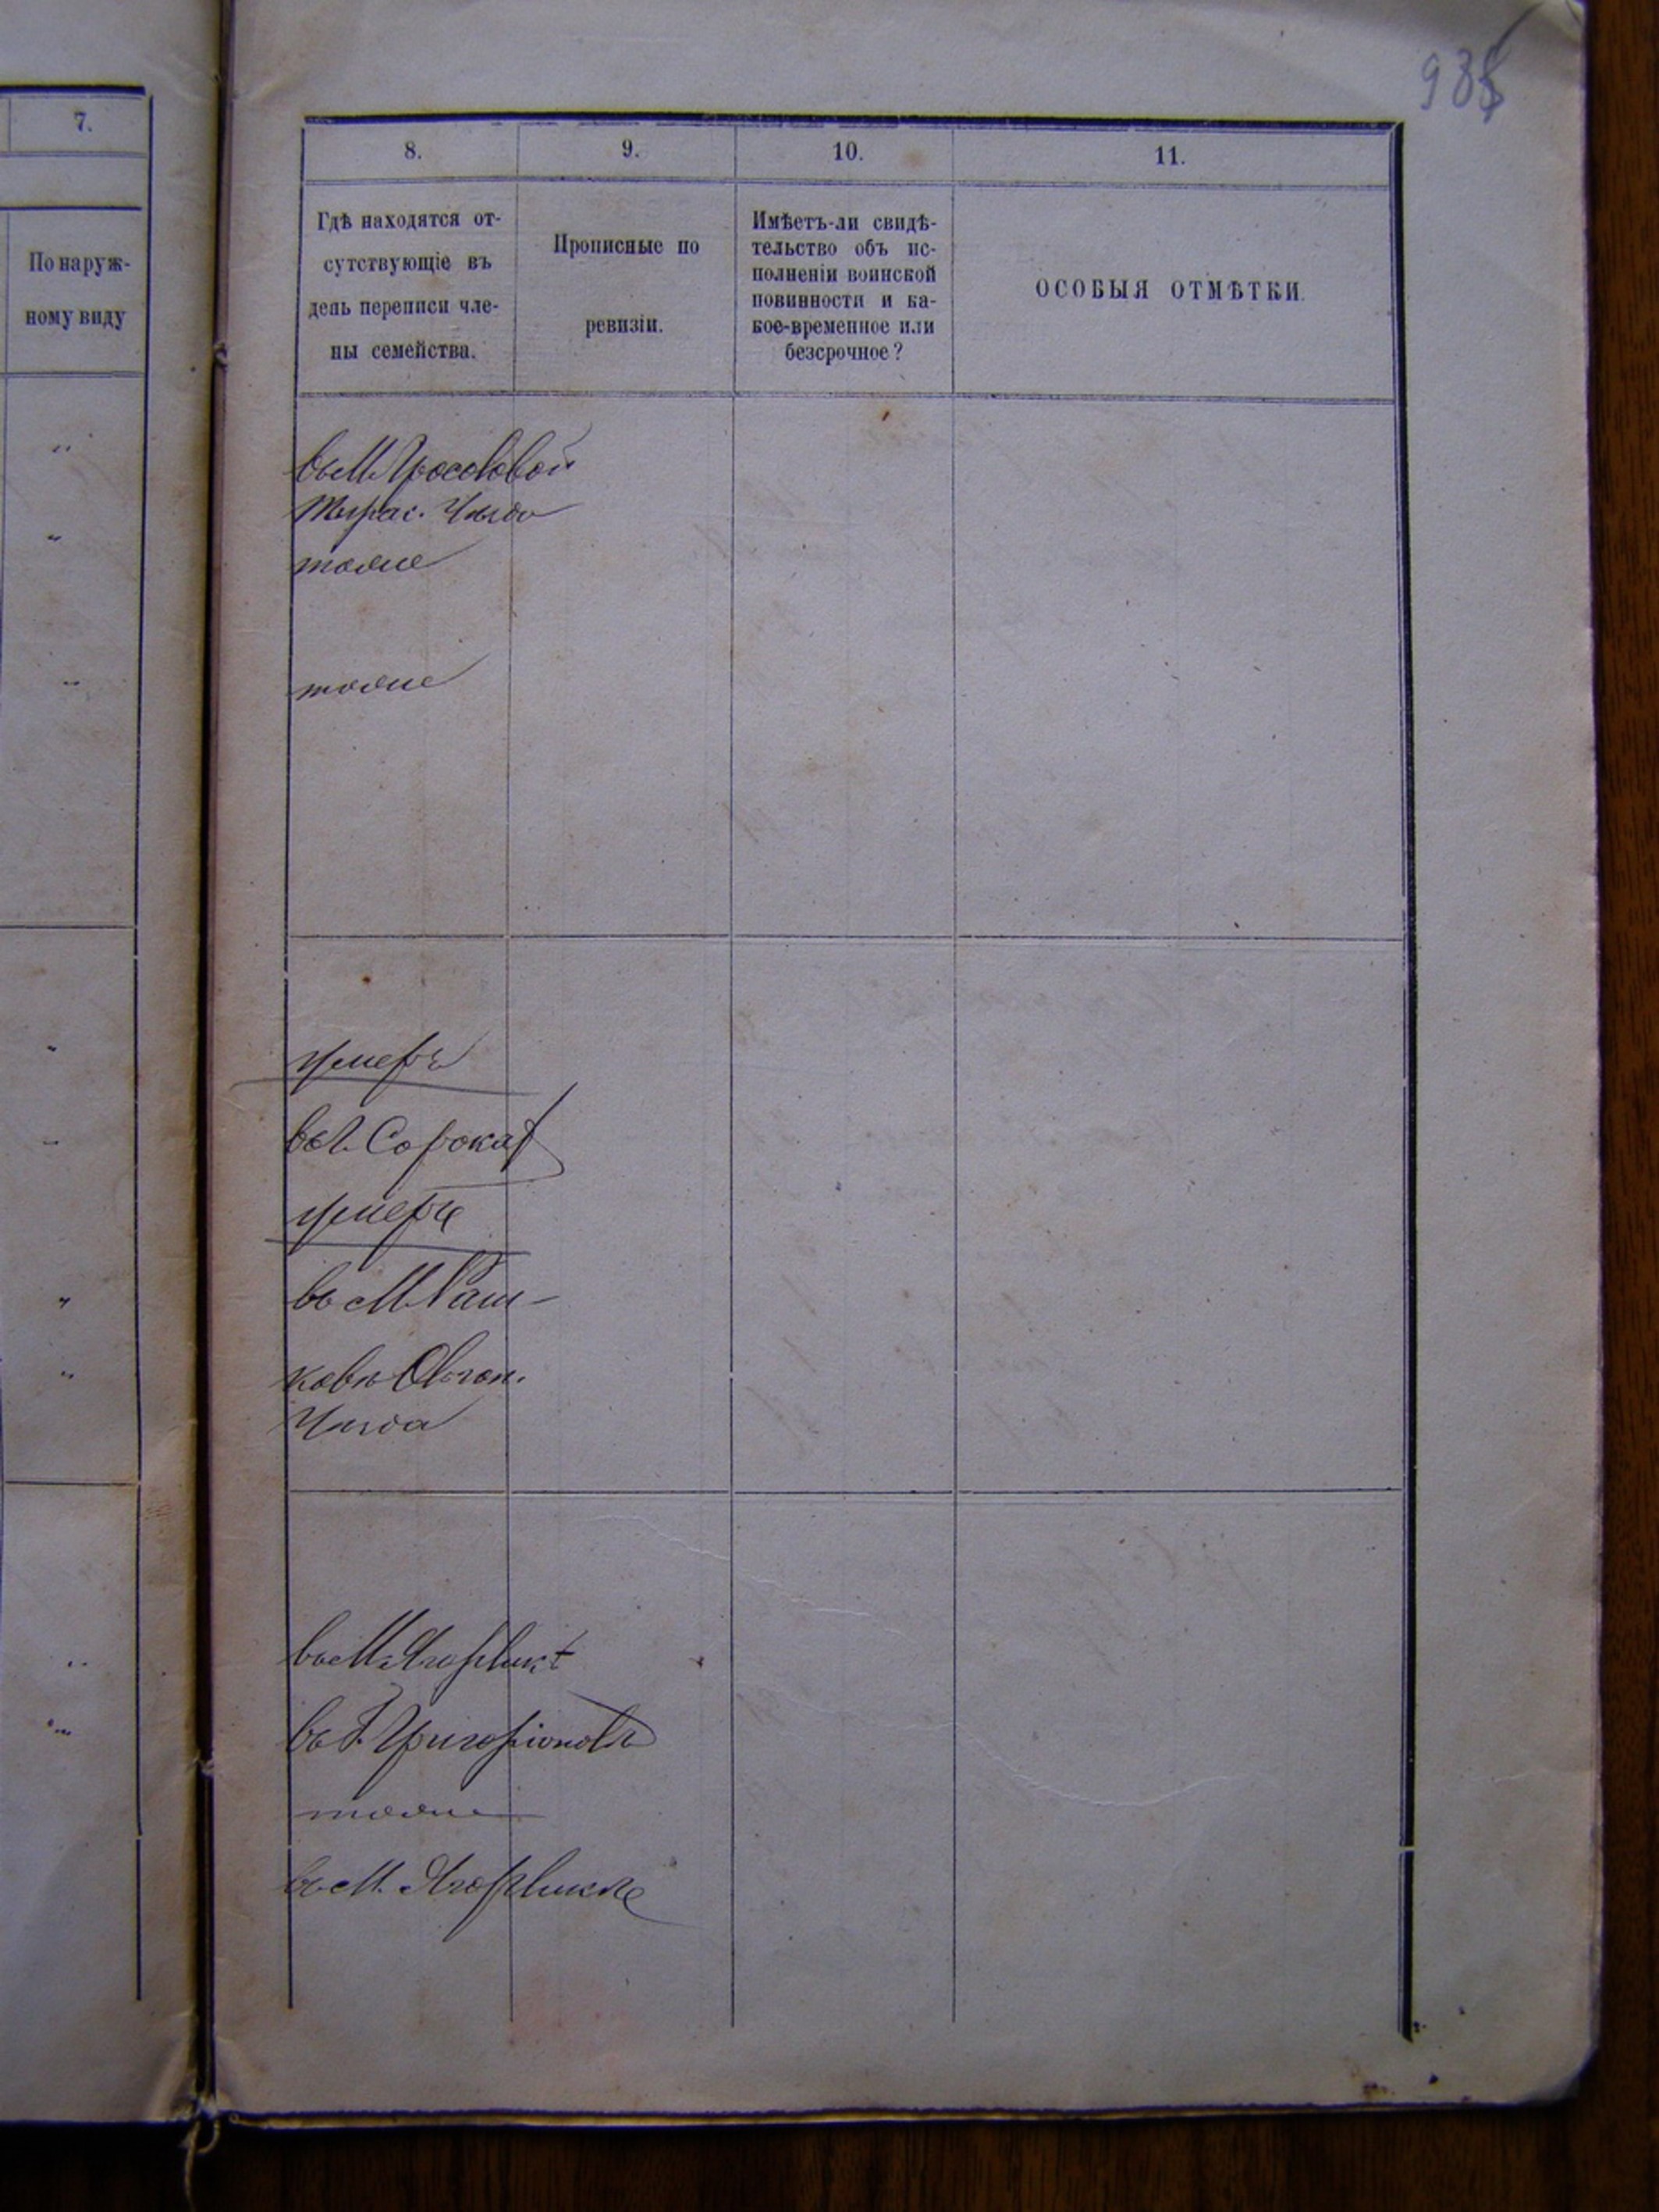 7.
По наруж-
ному виду
938
8.
9.
10.
11.
Гдѣ находятся от-
сутствующіе въ
день переписи чле-
ны семейства.
Прописные по
ревизіи.
Имѣетъ-ли свидѣ-
тельство объ ис-
полненіи воинской
повинности и ка-
кое-временное или
безсрочное?
ОСОБЫЯ ОТМѢТКИ.
въ М.
Тирас. Уѣзда
тоже
тоже
умеръ
въ г. Сорокахъ
умеръ
въ М. Раш-
ковѣ Ольгоп.
Уѣзда
въ М. Ягорликѣ
въ Г. Григоріополѣ
тоже
въ М. Ягорликѣ